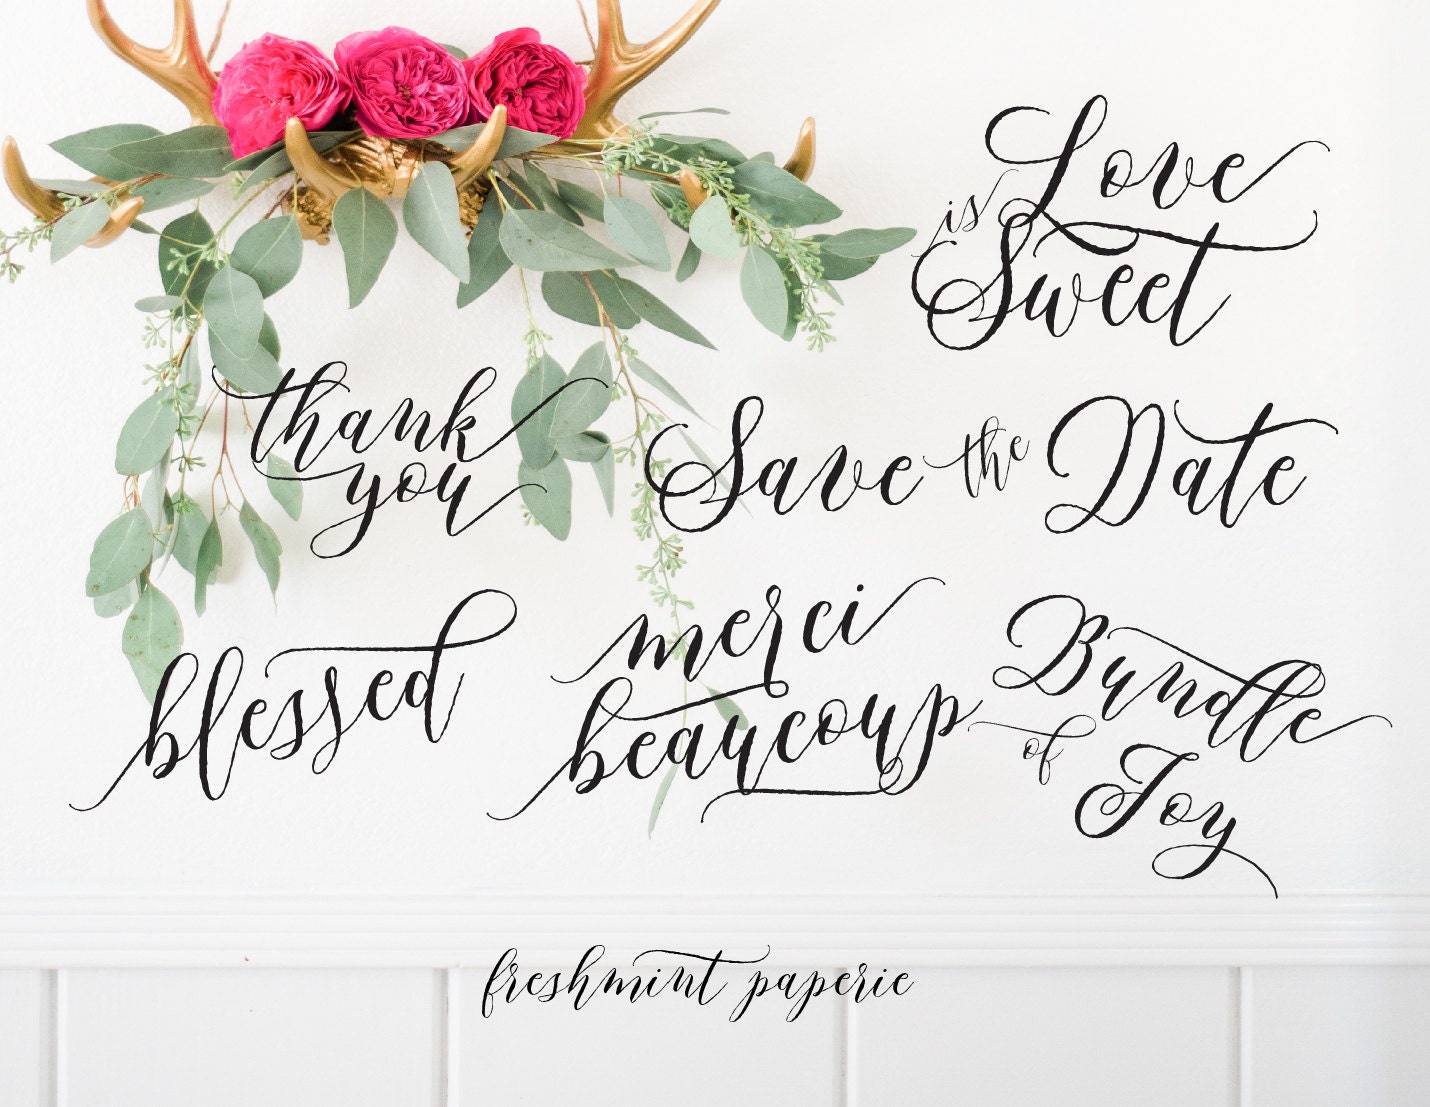 Love
is
Sweet
thank
you
Save the Date
blessed
merci
beaucoup
Bundle
of
Joy
freshmint paperie